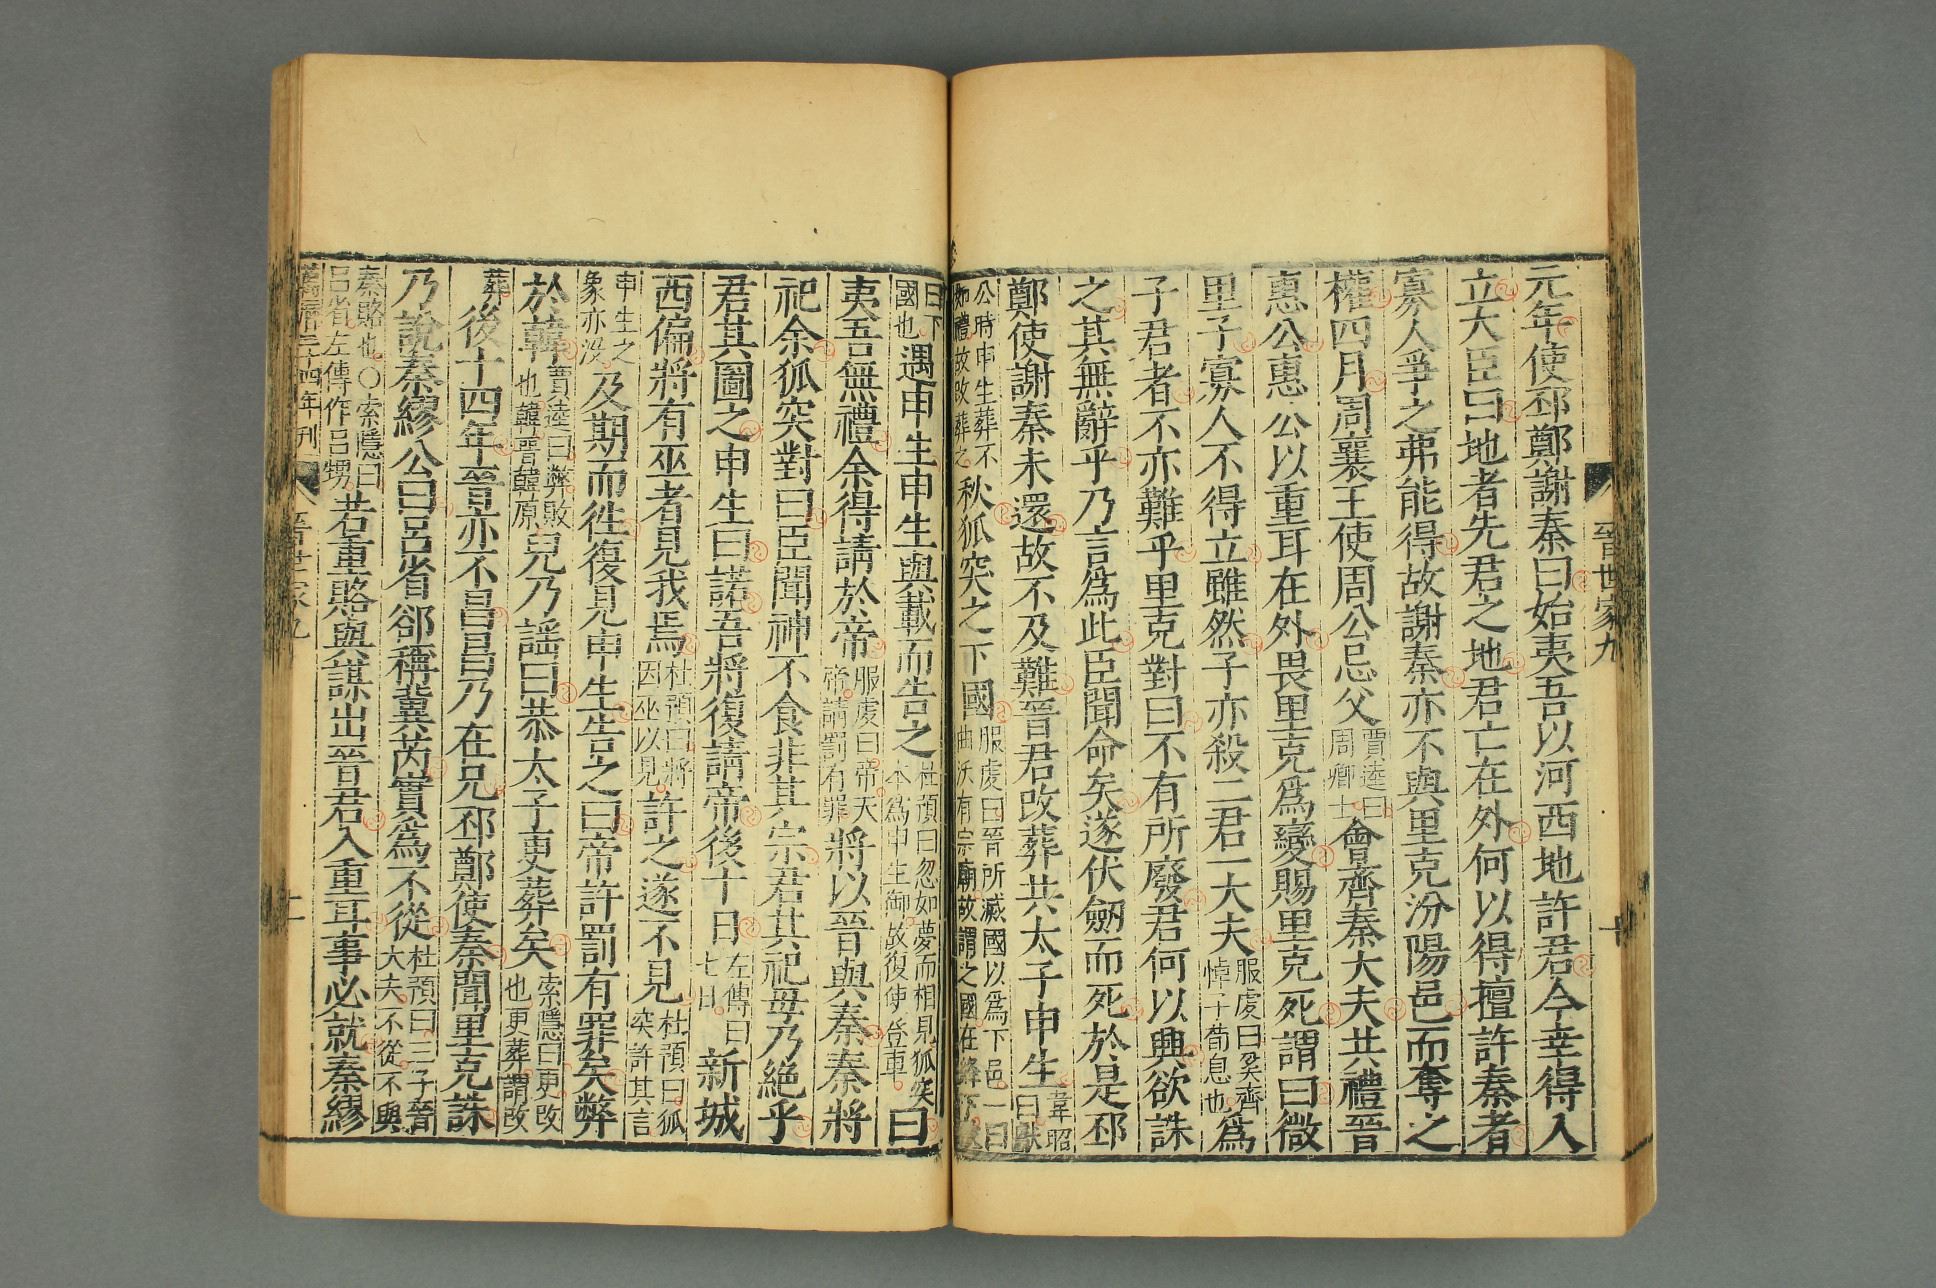 晉世家九
十
元年使邳鄭謝秦曰始夷吾以河西地許君今幸得入
立大臣曰地者先君之地君亡在外何以得擅許秦者
寡人爭之弗能得故謝秦亦不與里克汾陽邑而奪之
權四月周襄王使周公忌父賈逵曰周卿士會齊秦大夫共禮晉
惠公惠公以重耳在外畏里克爲變賜里克死謂曰微
里子寡人不得立雖然子亦殺二君一大夫服虔曰奚齊悼子荀息也爲
子君者不亦難乎里克對曰不有所廢君何以興欲誅
之其無辭乎乃言爲此臣聞命矣遂伏劒而死於是邳
鄭使謝秦未還故不及難晉君改葬共太子申生韋昭曰獻
公時申生葬不如禮故改葬之秋狐突之下國服虔曰晉所滅國以爲下邑一曰曲沃有宗廟故謂之國在絳下故
曰下國也遇申生申生與載而告之杜預曰忽如夢而相見狐突本爲申生御故復使登車曰
夷吾無禮余得請於帝服虔曰帝天帝請罰有罪將以晉與秦秦將
祀余狐突對曰臣聞神不食非其宗君其祀毋乃絕乎
君其圖之申生曰諾吾將復請帝後十日左傳曰七日新城
西偏將有巫者見我焉杜預曰將因巫以見許之遂不見杜預曰狐突許其言
申生之象亦没及期而徃復見申生告之曰帝許罰有罪矣弊
於韓賈逵曰弊敗也韓晉韓原兒乃謡曰恭太子更葬矣索隱曰更改也更葬謂改
葬後十四年晉亦不昌昌乃在兄邳鄭使秦聞里克誅
乃說秦繆公曰呂省郤稱冀芮實爲不從杜預曰三子晉大夫不從不與
秦賂也○索隱曰呂省左傳作呂甥若重賂與謀出晉君入重耳事必就秦繆
萬曆二十四年刊
晉世家九